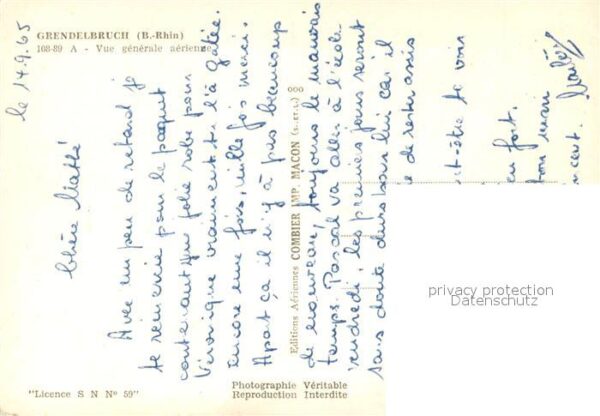 GRENDELBRUCH (B.-Rhin)
108-89 A - Vue générale aérienne
le 14.9.65
Chère Mathé
Avec un peu de retard je
te remercie pour le paquet
contenant une jolie robe pour
Véronique vraiment tu l'a gâtée.
encore une fois, mille fois merci.
Apart ça il n'y à pas beaucoup
de nouveau, toujours le mauvais
temps. Pascal va aller à l'école
vendredi, les premiers jours seront
sans doute durs pour lui car il
de rester assis
t-être te voir
fort.
ton mari
Editions Aériennes COMBIER IMP. MACON (S.-ET-L.)
privacy protection
Datenschutz
"Licence S N Nº 59"
Photographie Véritable
Reproduction Interdite